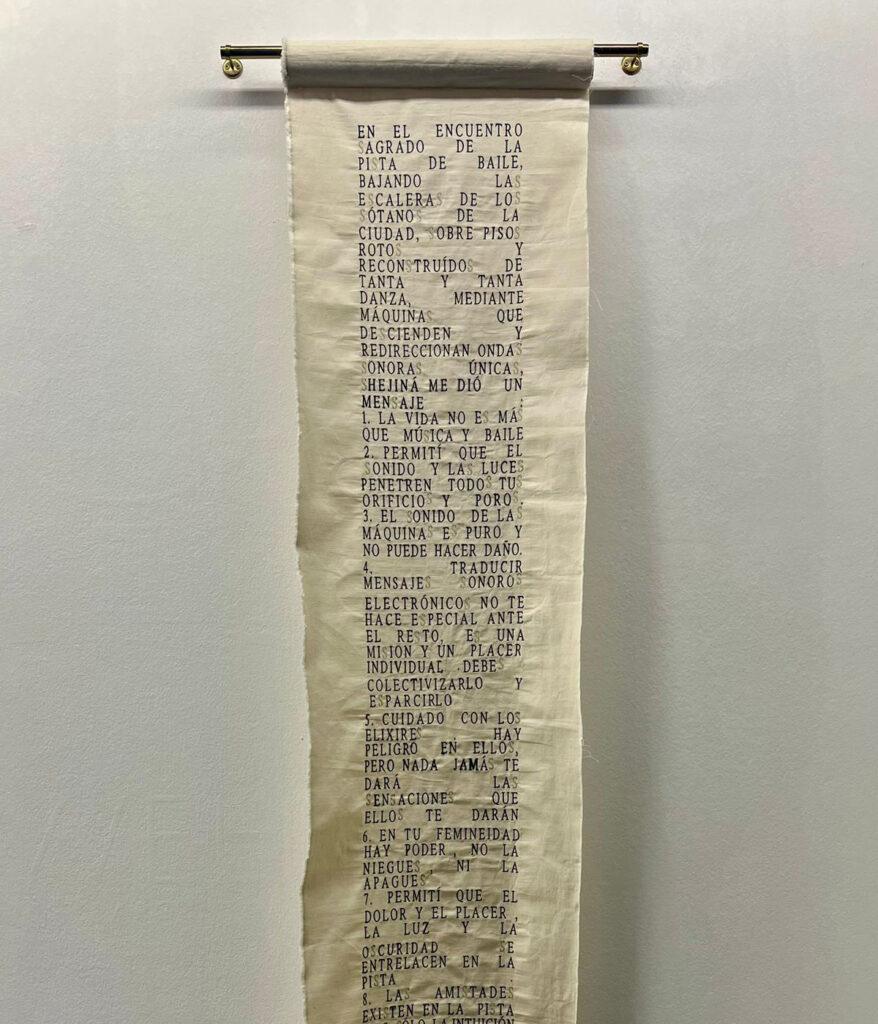 EN EL ENCUENTRO
SAGRADO DE LA
PISTA DE BAILE,
BAJANDO LAS
ESCALERAS DE LOS
SÓTANOS DE LA
CIUDAD, SOBRE PISOS
ROTOS Y
RECONSTRUÍDOS DE
TANTA Y TANTA
DANZA, MEDIANTE
MÁQUINAS QUE
DESCIENDEN Y
REDIRECCIONAN ONDAS
SONORAS ÚNICAS,
SHEJINÁ ME DIÓ UN
MENSAJE :
1. LA VIDA NO ES MÁS
QUE MÚSICA Y BAILE
2. PERMITÍ QUE EL
SONIDO Y LAS LUCES
PENETREN TODOS TUS
ORIFICIOS Y POROS.
3. EL SONIDO DE LAS
MÁQUINAS ES PURO Y
NO PUEDE HACER DAÑO.
4. TRADUCIR
MENSAJES SONOROS
ELECTRÓNICOS NO TE
HACE ESPECIAL ANTE
EL RESTO, ES UNA
MISIÓN Y UN PLACER
INDIVIDUAL . DEBES
COLECTIVIZARLO Y
ESPARCIRLO
5. CUIDADO CON LOS
ELIXIRES . HAY
PELIGRO EN ELLOS,
PERO NADA JAMÁS TE
DARÁ LAS
SENSACIONES QUE
ELLOS TE DARÁN
6. EN TU FEMINEIDAD
HAY PODER , NO LA
NIEGUES , NI LA
APAGUES
7. PERMITÍ QUE EL
DOLOR Y EL PLACER ,
LA LUZ Y LA
OSCURIDAD SE
ENTRELACEN EN LA
PISTA .
8. LAS AMISTADES
EXISTEN EN LA PISTA
SÓLO LA INTUICIÓN